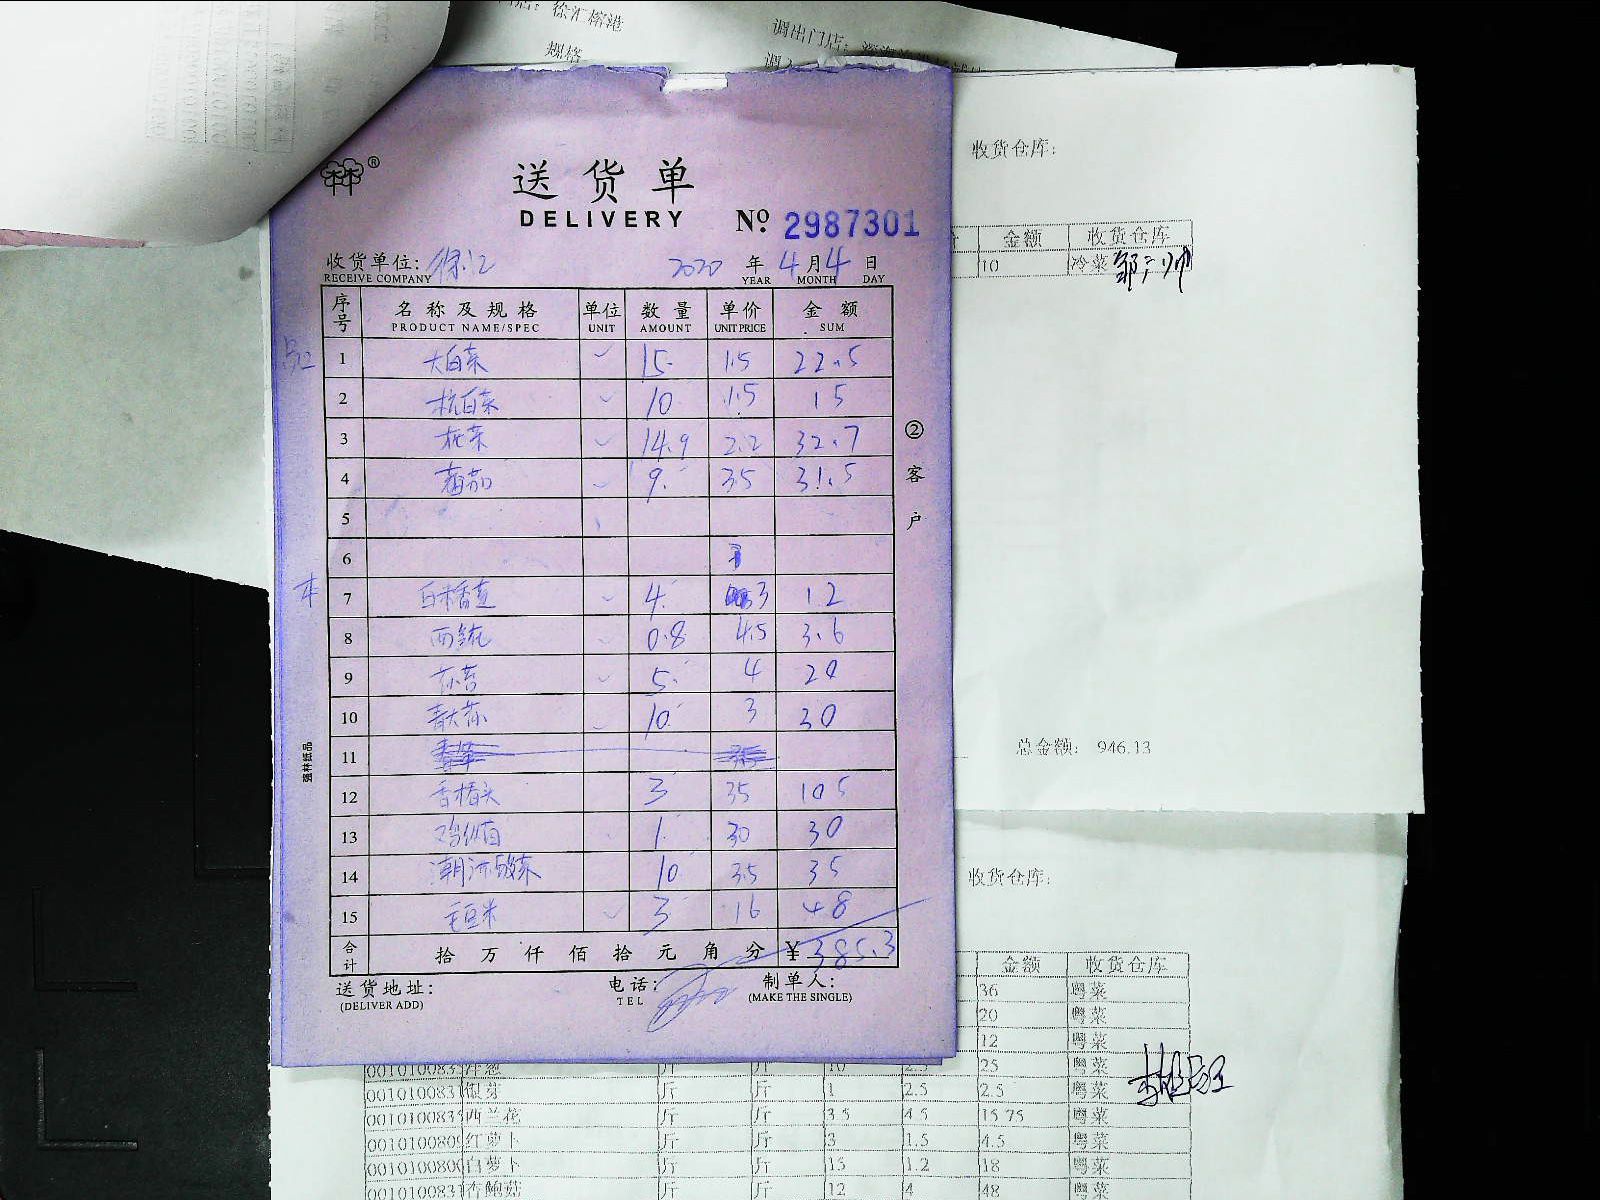 徐汇
调出门店:
规格
收货仓库:
金额 收货仓库
10 冷菜
总金额: 946.13
®
送货单
DELIVERY № 2987301
收货单位: 徐汇 2020 年 4 月 4 日
RECEIVE COMPANY YEAR MONTH DAY
序号 名称及规格 单位 数量 单价 金额
PRODUCT NAME/SPEC UNIT AMOUNT UNIT PRICE SUM
1 大白菜 15 1.5 22.5
2 杭白菜 10 1.5 15
3 花菜 14.9 2.2 32.7
4 番茄 9 3.5 31.5
5
6
本
7 4 3 12
8 西芹 0.8 4.5 3.6
9 5 4 20
10 10 3 30
11
12 香椿头 3 35 105
13 1 30 30
14 10 3.5 35
15 毛豆米 3 16 48
合计 拾 万 仟 佰 拾 元 角 分 ¥ 385.3
送货地址: 电话: 制单人:
(DELIVER ADD) TEL (MAKE THE SINGLE)
② 客户
强林纸品
收货仓库:
金额 收货仓库
36 粤菜
20 粤菜
12 粤菜
洋葱 斤 斤 10 2.5 25 粤菜
银芽 斤 斤 1 2.5 2.5 粤菜
西兰花 斤 斤 3.5 4.5 15.75 粤菜
红萝卜 斤 斤 3 1.5 4.5 粤菜
白萝卜 斤 斤 15 1.2 18 粤菜
杏鲍菇 斤 斤 12 4 48 粤菜